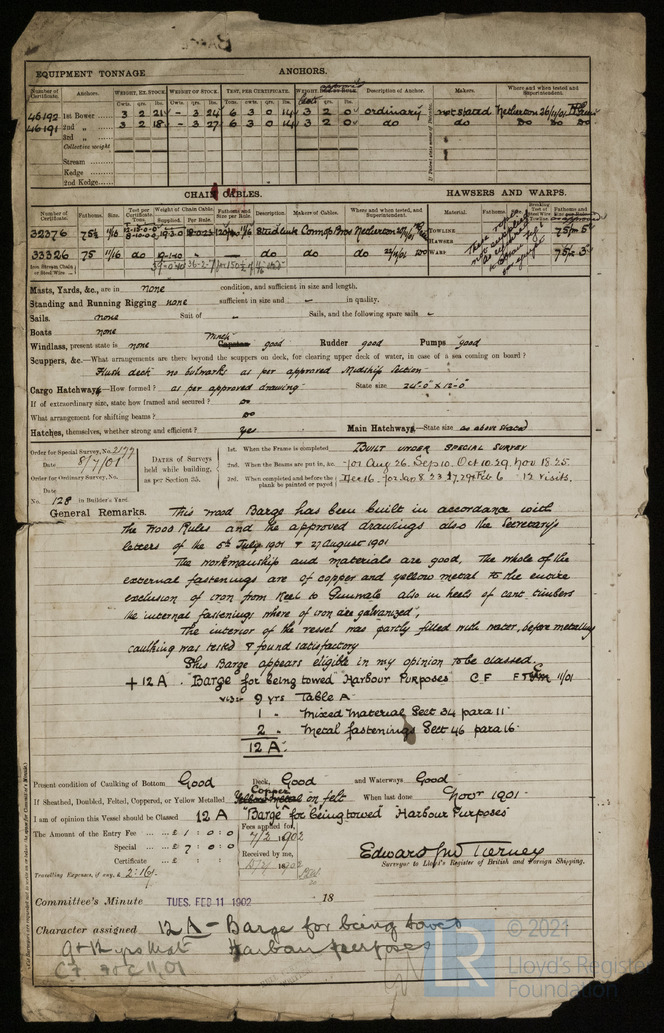 EQUIPMENT TONNAGE
ANCHORS.
Number of Certificate. Anchors. WEIGHT, EX. STOCK. WEIGHT OF STOCK. TEST, PER CERTIFICATE. WEIGHT Description of Anchor. Makers. Where and when tested and Superintendent.
Cwts. qrs. lbs. Cwts. qrs. lbs. Tons. cwts. qrs. lbs. Cwts. qrs. lbs.
46192 1st Bower 3 2 21 - 3 24 6 3 0 14 3 2 0 ordinary not stated Netherton 26/11/01
46191 2nd " 3 2 18 - 3 27 6 3 0 14 3 2 0 do do Do Do Do
3rd "
Collective weight
Stream
Kedge
2nd Kedge
CHAIN CABLES.
HAWSERS AND WARPS.
Number of Certificate. Fathoms. Size. Test per Certificate. Tons. Weight of Chain Cable. Supplied. Per Rule. Description Makers of Cables. Where and when tested, and Superintendent. Material. Fathoms.
32376 75½ 11/16 Stud link Netherton
TOWLINE 75 fm 5"
HAWSER
33326 75 11/16 do do do do
WARPS 75 fm 3"
Iron Stream Chain or Steel Wire
Masts, Yards, &c., are in none condition, and sufficient in size and length.
Standing and Running Rigging none sufficient in size and — in quality.
Sails. none Suit of - Sails, and the following spare sails -
Boats none
Windlass, present state is none Winch Capstan good Rudder good Pumps good
Scuppers, &c.—What arrangements are there beyond the scuppers on deck, for clearing upper deck of water, in case of a sea coming on board?
Flush deck no bulwarks as per approved Midship Section
Cargo Hatchways—How formed? as per approved drawing State size 24'-0" x 12'-0"
If of extraordinary size, state how framed and secured? Do
What arrangement for shifting beams? Do
Hatches, themselves, whether strong and efficient? Yes Main Hatchways—State size as above stated
Order for Special Survey, No. 2177
Date 8/7/01
Order for Ordinary Survey, No.
Date
No. 128 in Builder's Yard.
DATES of Surveys held while building, as per Section 35.
1st. When the Frame is completed BUILT UNDER SPECIAL SURVEY
2nd. When the Beams are put in, &c. 1901 Aug 26. Sep 10. Oct 10.29. Nov 18.25.
3rd. When completed and before the plank be painted or payed Dec 16. 1902 Jan 8.23.27.29 Feb 6 12 visits.
General Remarks. This wood Barge has been built in accordance with
the Wood Rules and the approved drawings also the Secretary's
letters of the 5th July 1901 & 27 August 1901
The workmanship and materials are good, The whole of the
external fastenings are of copper and yellow metal to the entire
exclusion of iron from Keel to Gunwale also in heels of cant timbers
the internal fastenings where of iron are galvanized",
The interior of the vessel was partly filled with water, before metalling
caulking was tested & found satisfactory
This Barge appears eligible in my opinion to be classed.
+ 12 A "Barge for being towed" Harbour Purposes" C F 11/01
9 yrs Table A
1 - Mixed Material Sect 34 para 11
2 - Metal fastenings Sect 46 para 16
12 A
Present condition of Caulking of Bottom Good Deck, Good and Waterways Good
If Sheathed, Doubled, Felted, Coppered, or Yellow Metalled Copper Yellow metal on felt When last done Novr 1901
I am of opinion this Vessel should be Classed 12 A "Barge "for being towed" Harbour Purposes"
The Amount of the Entry Fee £ 1 : 0 : 0
Special £ 7 : 0 : 0
Certificate £ : :
Travelling Expenses, if any, £ 2:16/.
Fees applied for, 7/2 1902
Received by me,
Edward Jno Tierney
Surveyor to Lloyd's Register of British and Foreign Shipping.
Committee's Minute TUES. FEB 11 1902 18
Character assigned 12 A - Barge for being towed
Harbour purposes
© 2021
LR
Lloyd's Register
Foundation